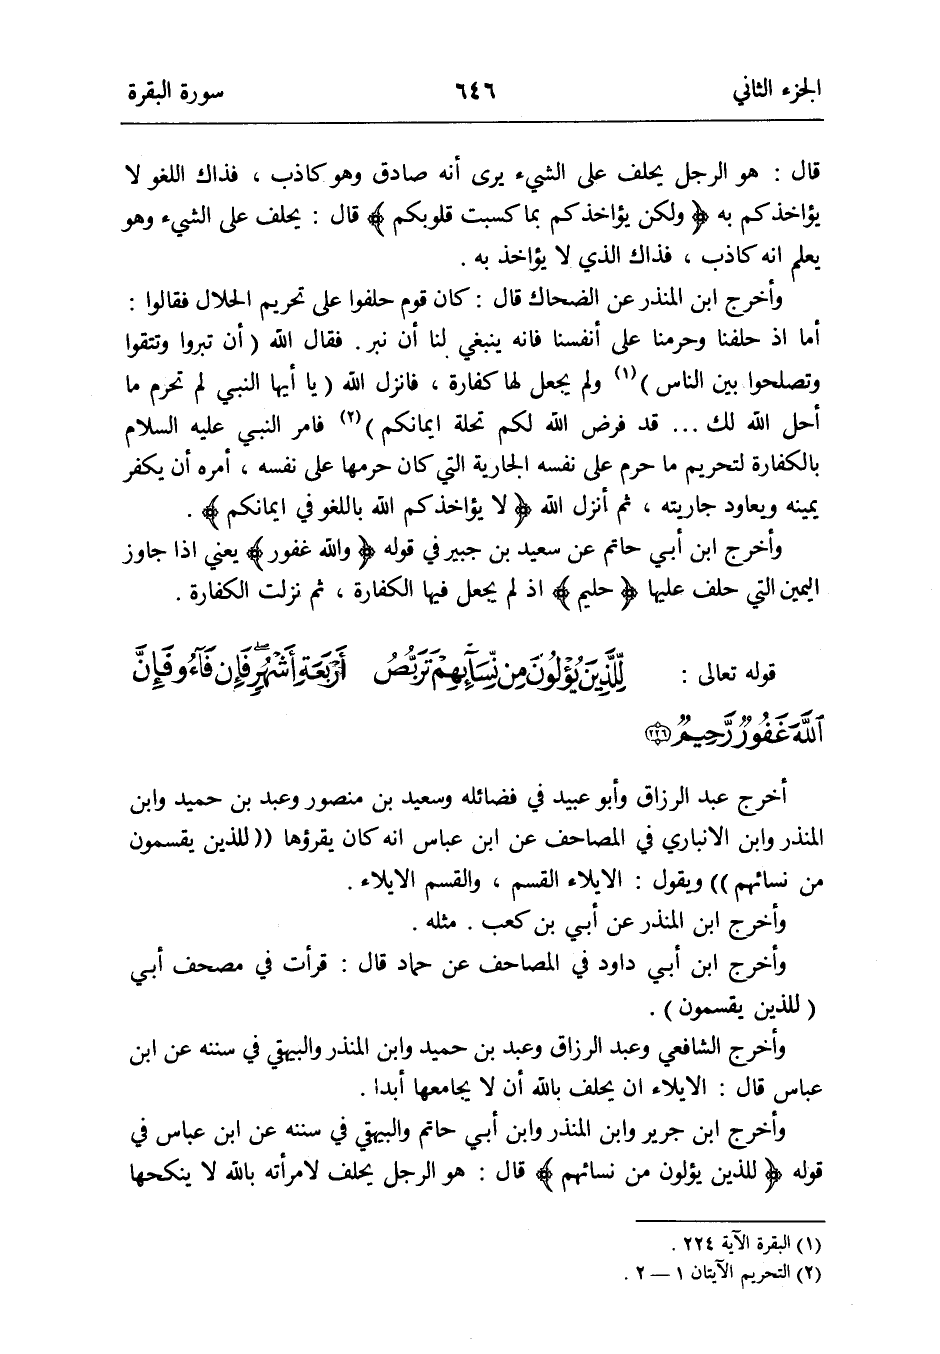 الجزء الثاني ٦٤٦ سورة البقرة
قال : هو الرجل يحلف على الشيء يرى أنه صادق وهو كاذب ، فذاك اللغو لا
يؤاخذكم به ﴿ ولكن يؤاخذكم بما كسبت قلوبكم ﴾ قال : يحلف على الشيء وهو
يعلم انه كاذب ، فذاك الذي لا يؤاخذ به .
وأخرج ابن المنذر عن الضحاك قال : كان قوم حلفوا على تحريم الحلال فقالوا :
أما اذ حلفنا وحرمنا على أنفسنا فانه ينبغي لنا أن نبر . فقال الله ( أن تبروا وتتقوا
وتصلحوا بين الناس )(١) ولم يجعل لها كفارة ، فانزل الله ( يا أيها النبي لم تحرم ما
أحل الله لك ... قد فرض الله لكم تحلة ايمانكم )(٢) فامر النبي عليه السلام
بالكفارة لتحريم ما حرم على نفسه الجارية التي كان حرمها على نفسه ، أمره أن يكفر
يمينه ويعاود جاريته ، ثم أنزل الله ﴿ لا يؤاخذكم الله باللغو في ايمانكم ﴾ .
وأخرج ابن أبي حاتم عن سعيد بن جبير في قوله ﴿ والله غفور ﴾ يعني اذا جاوز
اليمين التي حلف عليها ﴿ حليم ﴾ اذ لم يجعل فيها الكفارة ، ثم نزلت الكفارة .
قوله تعالى : لِّلَّذِينَ يُؤْلُونَ مِن نِّسَآئِهِمْ تَرَبُّصُ أَرْبَعَةِ أَشْهُرٍ ۖ فَإِن فَآءُو فَإِنَّ
ٱللَّهَ غَفُورٌ رَّحِيمٌ ٢٢٦
أخرج عبد الرزاق وأبو عبيد في فضائله وسعيد بن منصور وعبد بن حميد وابن
المنذر وابن الانباري في المصاحف عن ابن عباس انه كان يقرؤها (( للذين يقسمون
من نسائهم )) ويقول : الايلاء القسم ، والقسم الايلاء .
وأخرج ابن المنذر عن أبي بن كعب . مثله .
وأخرج ابن أبي داود في المصاحف عن حماد قال : قرأت في مصحف أبي
( للذين يقسمون ) .
وأخرج الشافعي وعبد الرزاق وعبد بن حميد وابن المنذر والبيهقي في سننه عن ابن
عباس قال : الايلاء ان يحلف بالله أن لا يجامعها أبدا .
وأخرج ابن جرير وابن المنذر وابن أبي حاتم والبيهقي في سننه عن ابن عباس في
قوله ﴿ للذين يؤلون من نسائهم ﴾ قال : هو الرجل يحلف لامرأته بالله لا ينكحها
(١) البقرة الآية ٢٢٤ .
(٢) التحريم الآيتان ١ — ٢ .